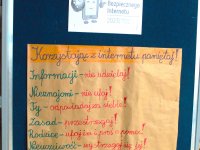 Bezpiecznego
Internetu
Korzystając z internetu pamiętaj!
Informacji - nie udzielaj!
Nieznajomi - nie ufaj!
Ty - odpowiadasz za siebie!
Zasad - przestrzegaj!
Rodzice - ufaj im i proś o pomoc!